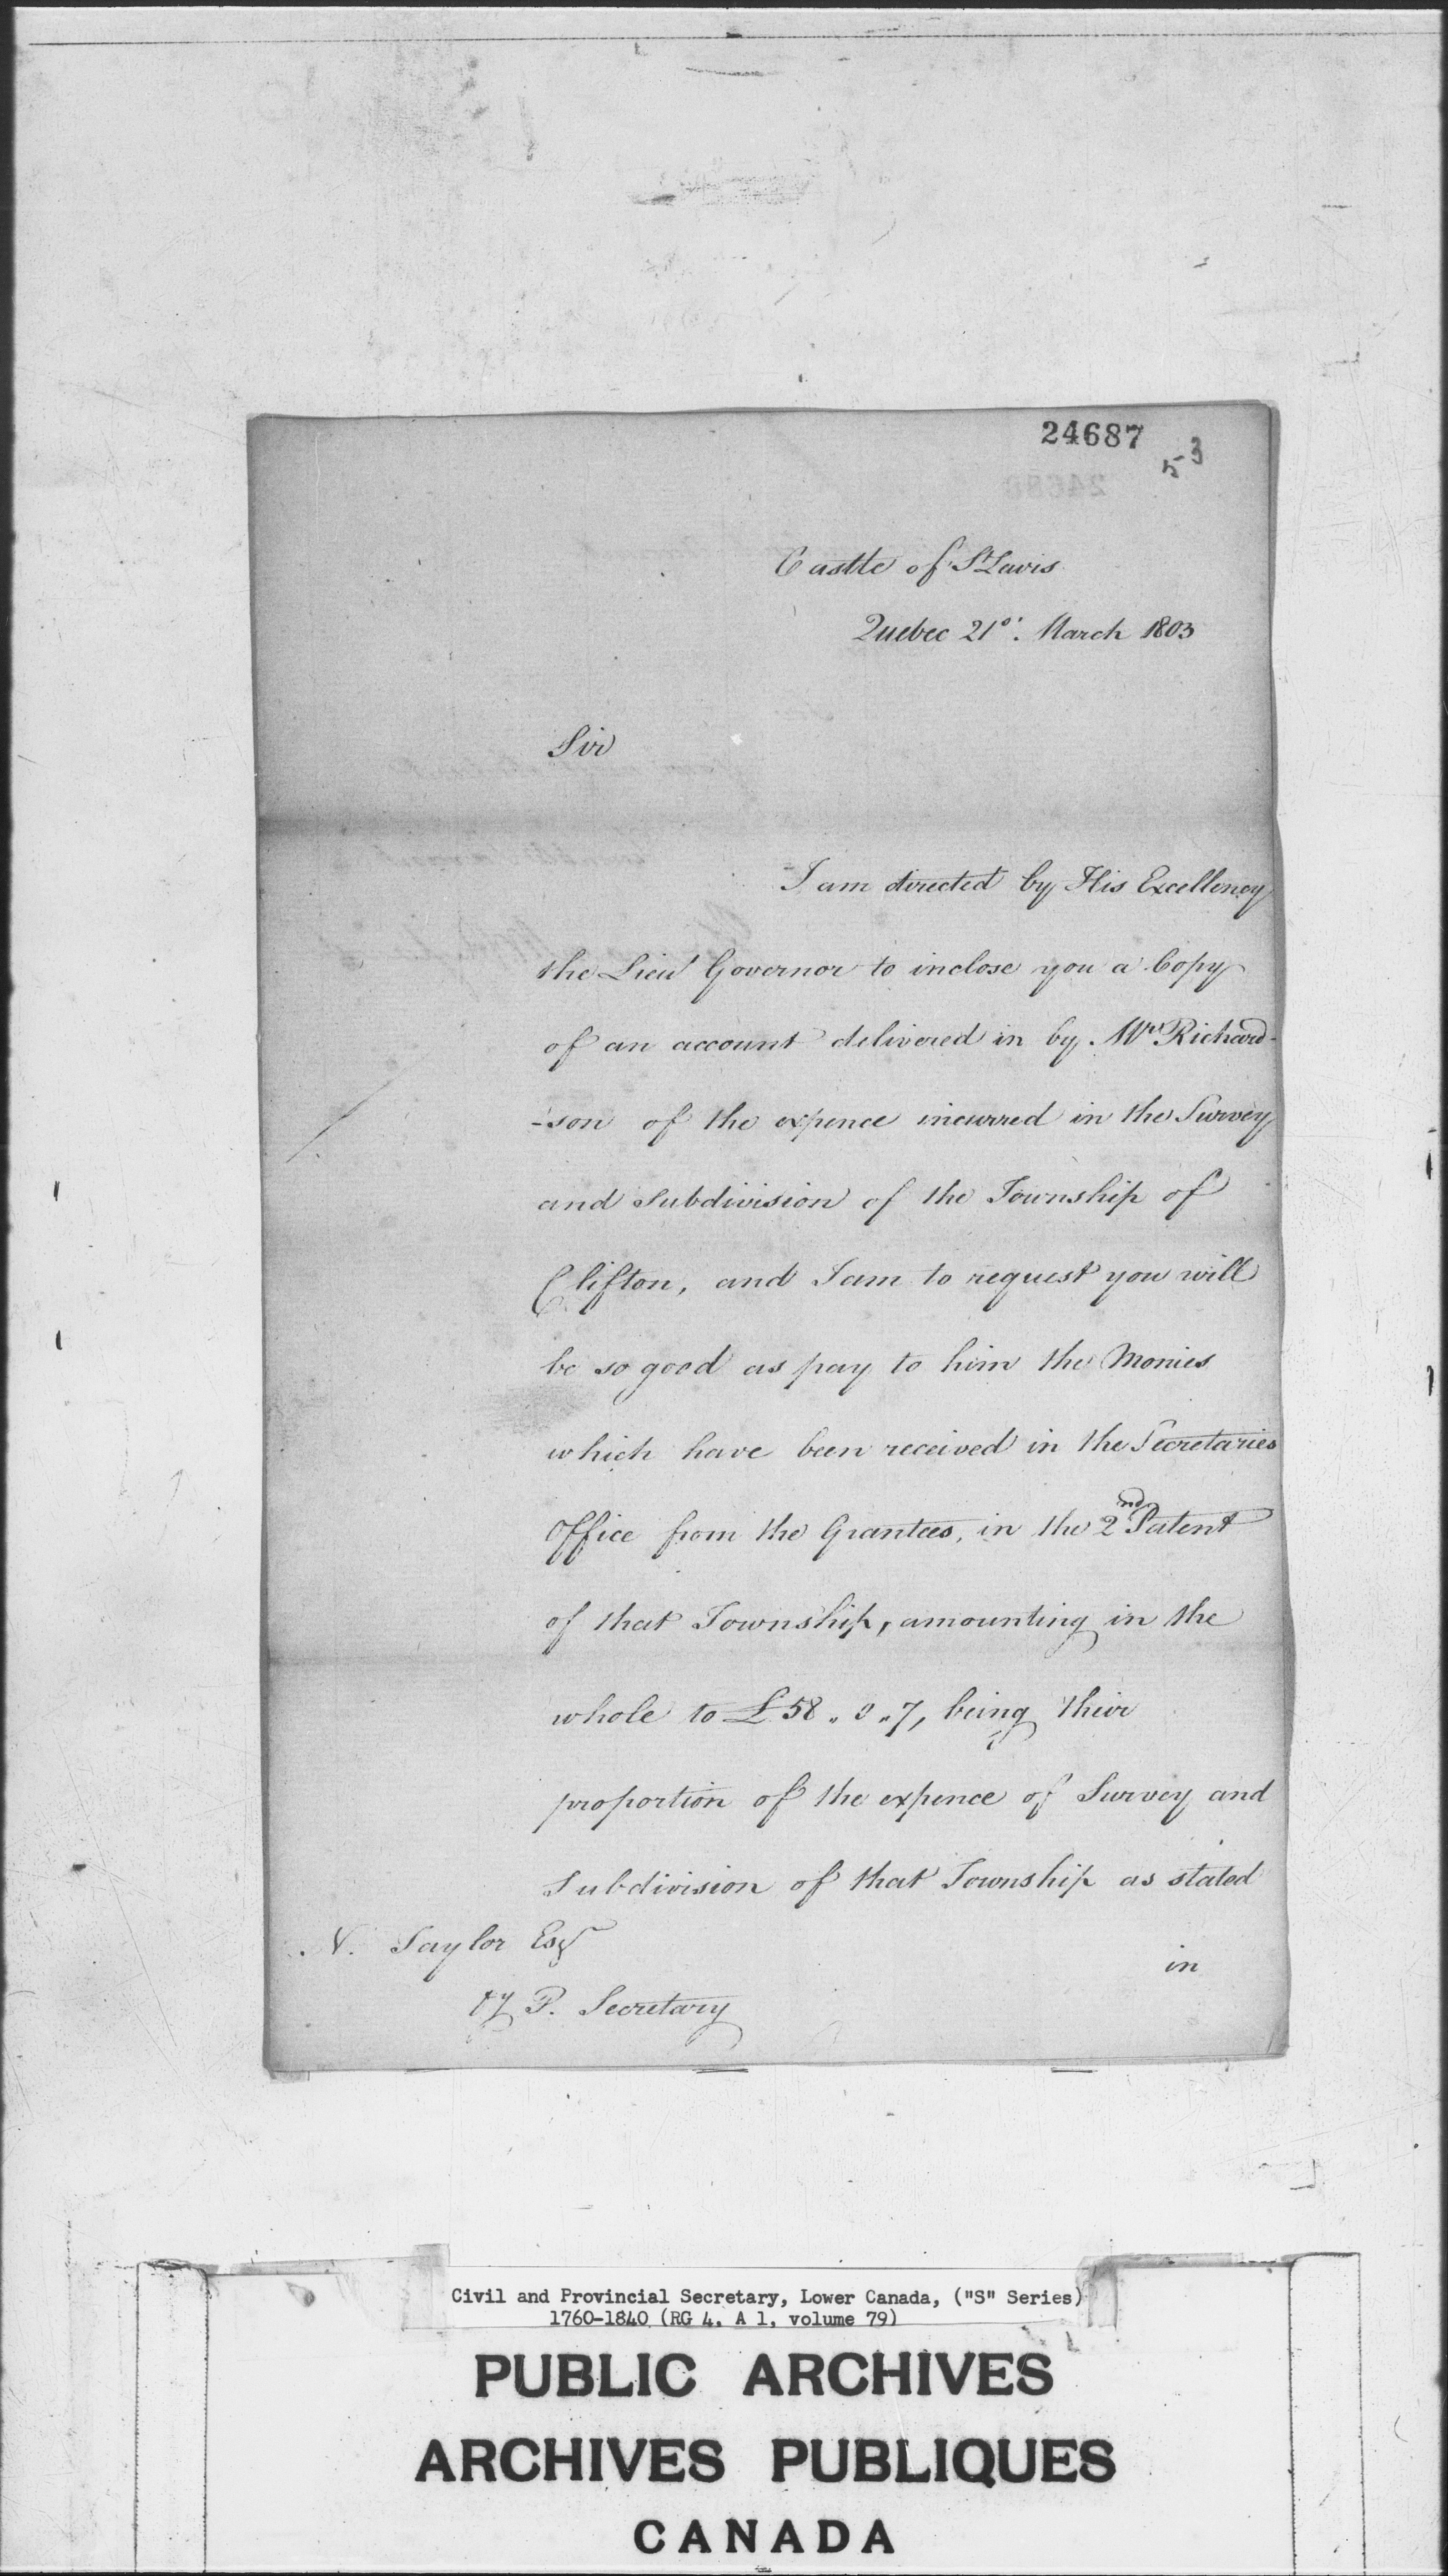 24687
53
Castle of St Lewis
Quebec 21º. March 1803
Sir
I am directed by His Excellency
the Lieut Governor to inclose you a Copy
of an account delivered in by Mr Richard-
-son of the expence incurred in the Survey
and Subdivision of the Township of
Clifton, and I am to request you will
be so good as pay to him the Monies
which have been received in the Secretaries
Office from the Grantees, in the 2nd Patent
of that Township, amounting in the
whole to £58 " 0 " 7, being their
proportion of the expence of Survey and
Subdivision of that Township as stated
N. Taylor Esqr
in
P. Secretary
Civil and Provincial Secretary, Lower Canada, ("S" Series)
1760-1840 (RG 4, A 1, volume 79)
PUBLIC ARCHIVES
ARCHIVES PUBLIQUES
CANADA